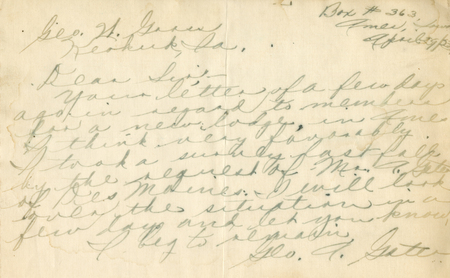 Box # 363,
Ames, Iowa
April
Geo. H.
Keokuk, Ia.
Dear Sir:-
Your letter of a few days
ago in regard to members
for a new lodge in Ames
I think very favorably.
I took a survey last fall
by the request of Mr.
of Des Moines. I will look
over the situation in a
few days and let you know.
I beg to remain
Geo. A.